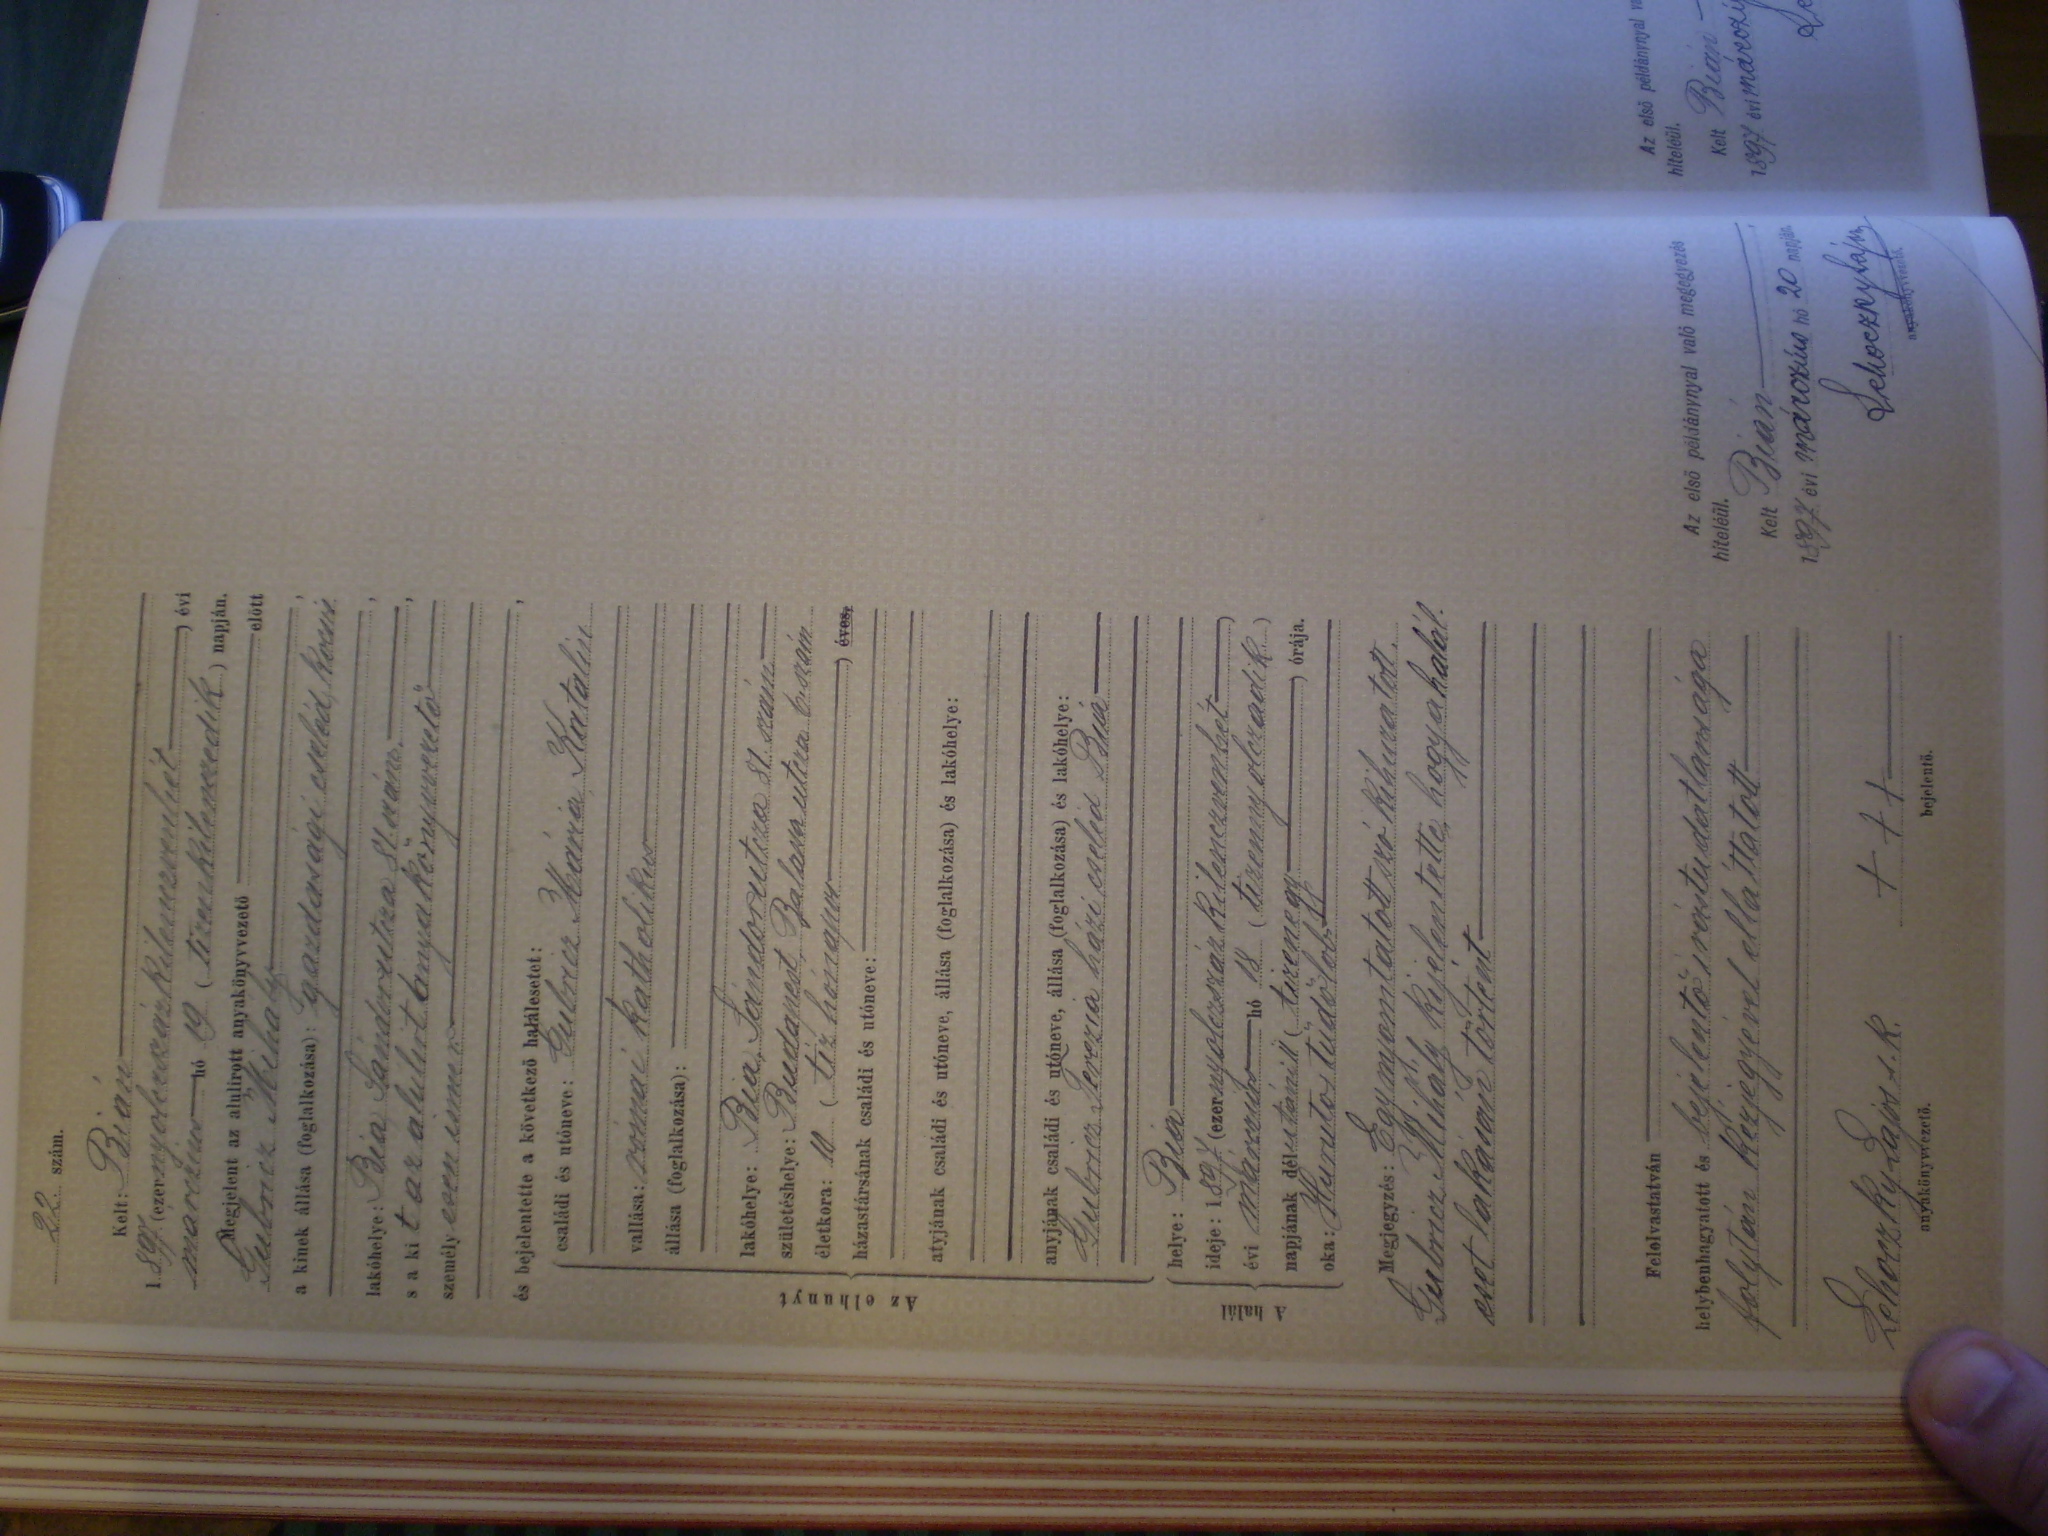 22. szám.
Kelt: Bián
1897 (ezernyolczszázkilenczvenhét) évi
márczius hó 19 (tizenkilenczedik) napján.
Megjelent az alulirott anyakönyvvezető előtt
Gubricz Mihály
a kinek állása (foglalkozása): gazdasági cseléd, kocsis
lakóhelye: Bia Sándorutcza 81 szám,
s a kit az alulirt anyakönyvvezető
személyesen ismer
és bejelentette a következő halálesetet:
Az elhunyt
családi és utóneve: Gubricz Mária Katalin
vallása: római katholikus
állása (foglalkozása):
lakóhelye: Bia, Sándorutcza 81. szám
születéshelye: Budapest, utcza 6 szám
életkora: 10 (tiz hónapos) éves,
házastársának családi és utóneve:
atyjának családi és utóneve, állása (foglalkozása) és lakóhelye:
anyjának családi és utóneve, állása (foglalkozása) és lakóhelye:
Gubricz Terézia házi cseléd Bia
A halál
helye: Bia
ideje: 1897 (ezernyolczszázkilenczvenhét)
évi márczius hó 18 (tizennyolczadik)
napjának délutáni 11 (tizenegy) órája.
oka: Hurutos tüdőlob
Megjegyzés: Egy nyomtatott szó kihuzatott.
Gubricz Mihály kijelentette, hogy a halál
eset lakásán történt
Felolvastatván
helybenhagyatott és bejelentő irástudatlansága
folytán kézjegyével elláttatott
Lehoczky Lajos s.k.
anyakönyvvezető.
+ + +
bejelentő.
Az első példánynyal való megegyezés
hiteléül.
Kelt Bián
1897 évi márczius hó 20 napján
Lehoczky Lajos
anyakönyvvezető.
Az első példánynyal
hiteléül.
Kelt Bián
1897 évi